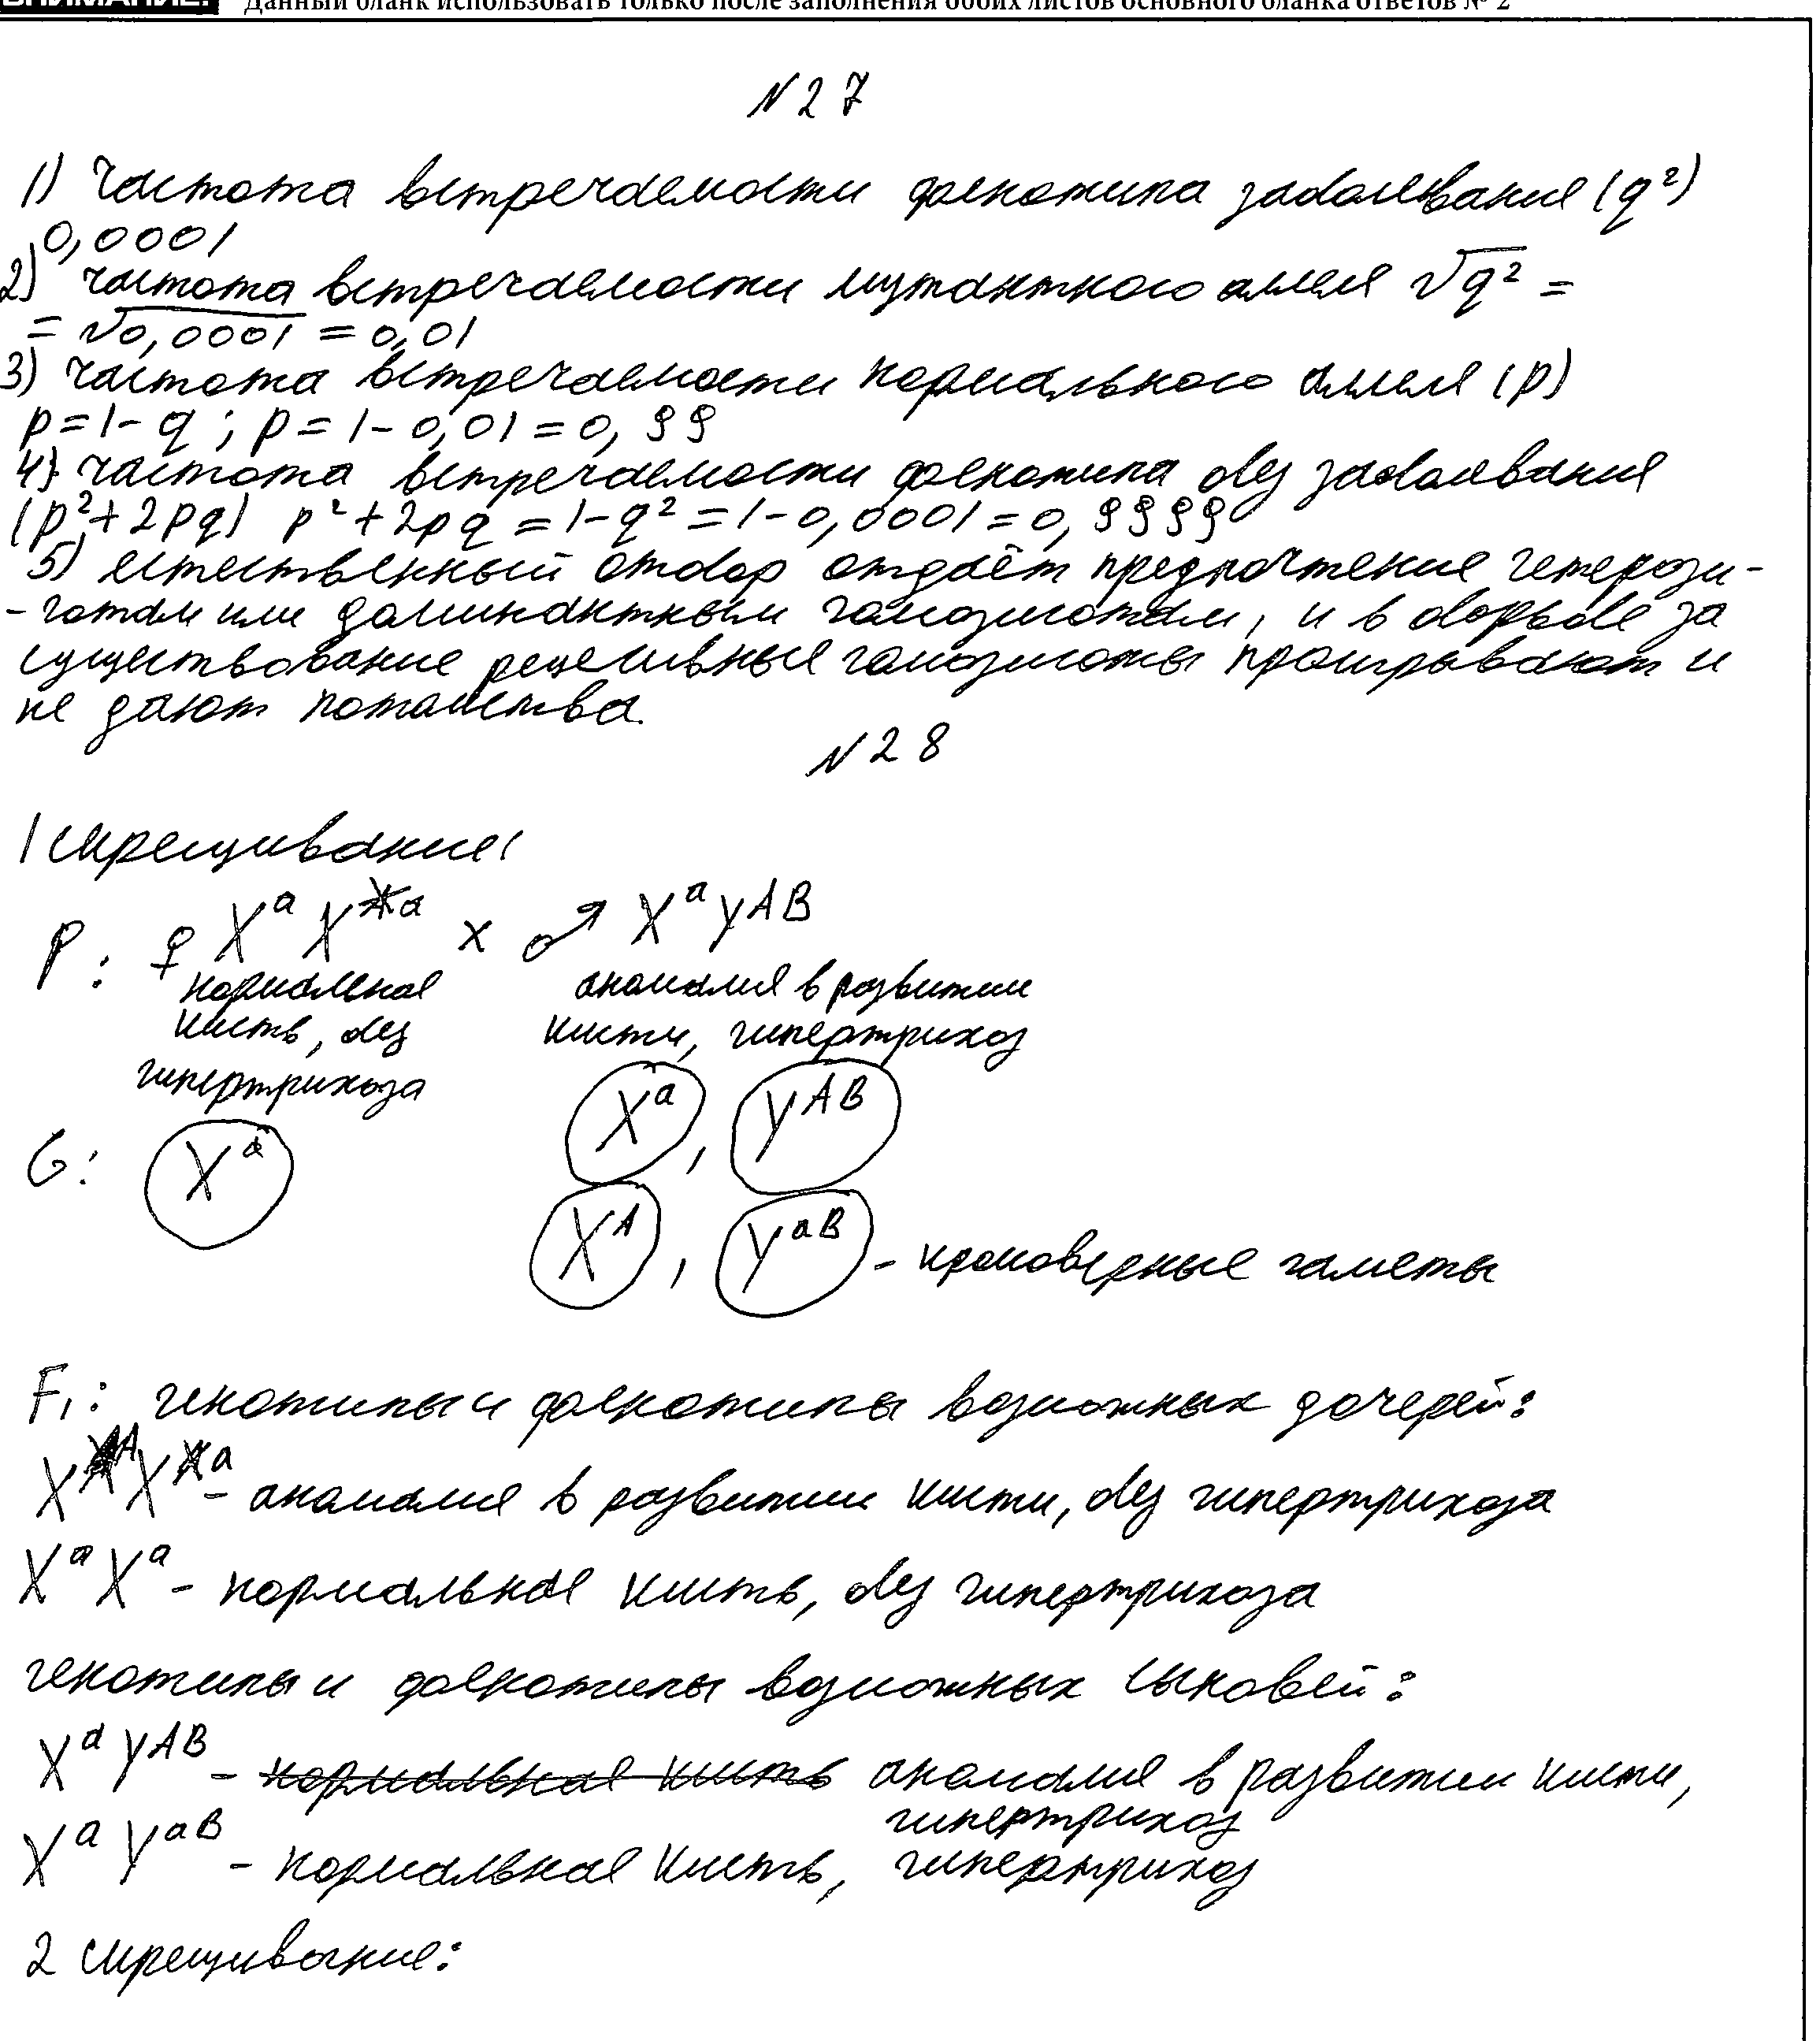 ВНИМАНИЕ! Данный бланк использовать только после заполнения обоих листов основного бланка ответов № 2
№ 27
1) Частота встречаемости фенотипа заболевание (q²)
0,0001
2) частота встречаемости мутантного аллеля √q² =
= √0,0001 = 0,01
3) частота встречаемости нормального аллеля (p)
p = 1 - q ; p = 1 - 0,01 = 0,99
4) частота встречаемости фенотипа без заболевания
(p² + 2pq) p² + 2pq = 1 - q² = 1 - 0,0001 = 0,9999
5) естественный отбор отдаёт предпочтение гетерози-
-готам или доминантным гомозиготам, и в борьбе за
существование рецесивные гомозиготы проигрывают и
не дают потомства.
№ 28
1 скрещивание:
P: ♀ Xᵃ Xᵃ x ♂ Xᵃ Yᴬᴮ
нормальная аномалия в развитии
кисть, без кисти, гипертрихоз
гипертрихоза
Xᵃ , Yᴬᴮ
G: Xᵃ
Xᴬ , Yᵃᴮ - кроноверные гаметы
F₁: генотипы и фенотипы возможных дочерей:
Xᴬ Xᵃ - аномалия в развитии кисти, без гипертрихоза
Xᵃ Xᵃ - нормальная кисть, без гипертрихоза
генотипы и фенотипы возможных сыновей:
Xᵃ Yᴬᴮ - нормальная кисть аномалия в развитии кисти,
гипертрихоз
Xᵃ Yᵃᴮ - нормальная кисть, гипертрихоз
2 скрещивание: